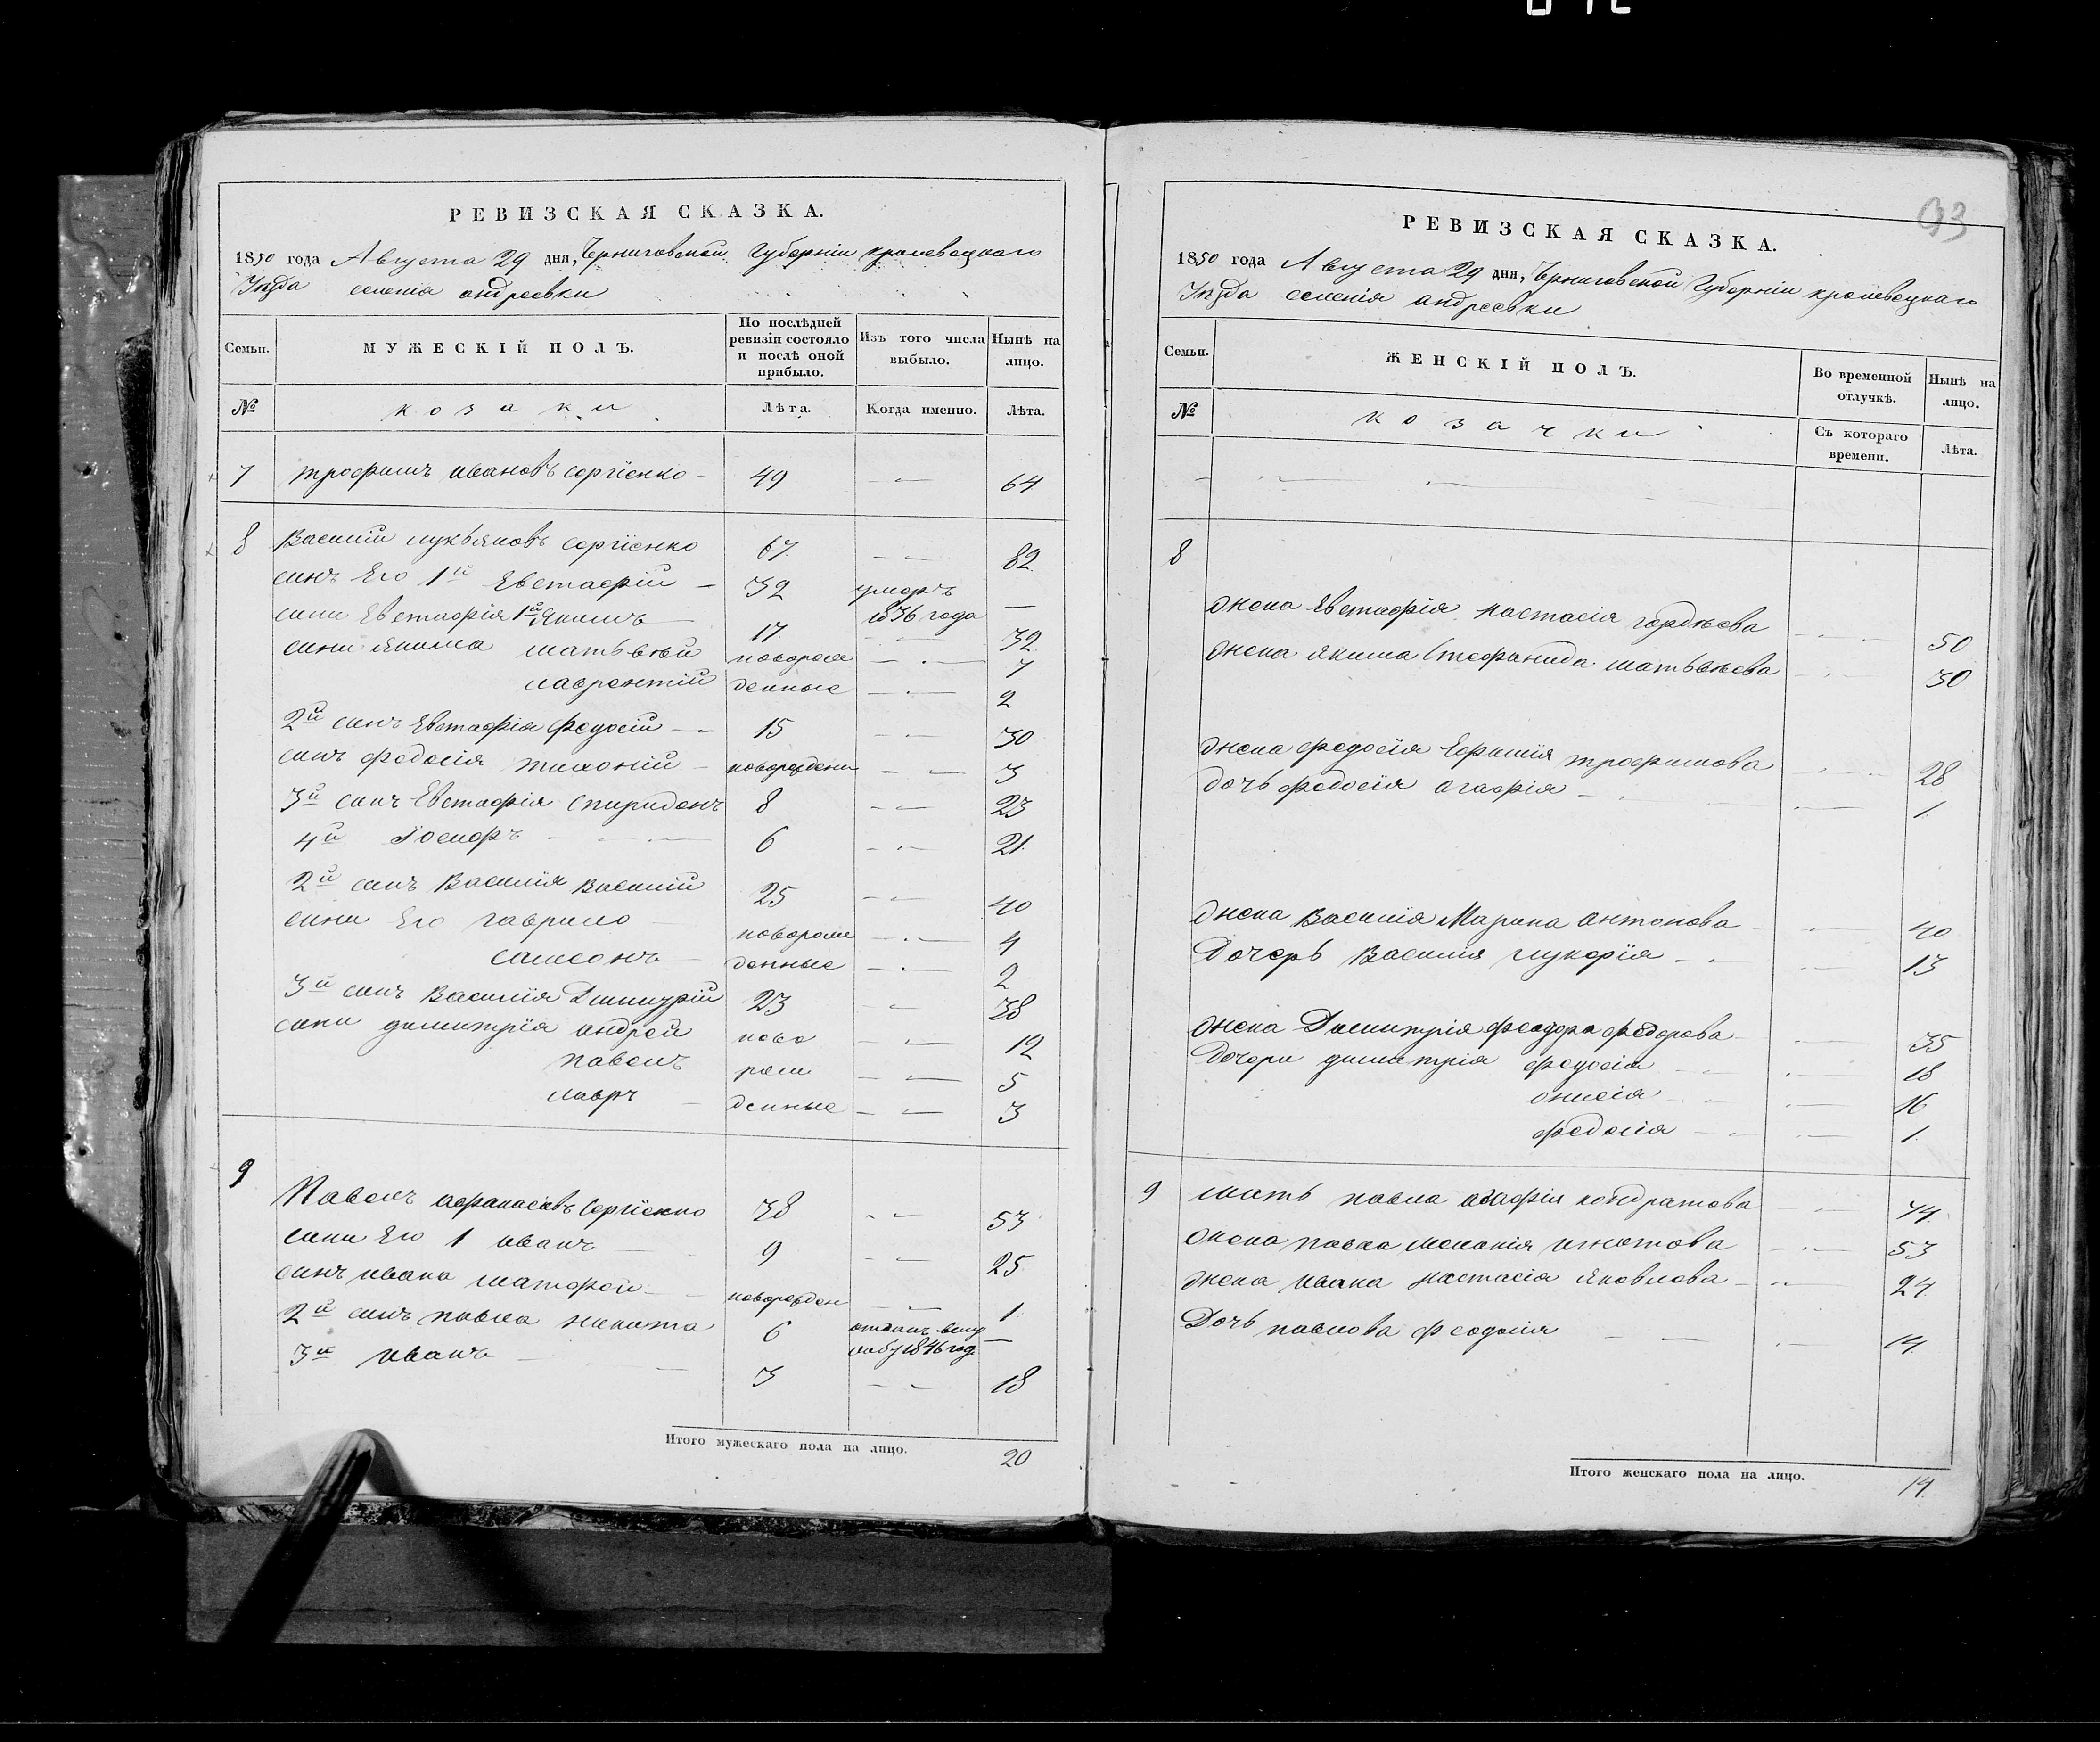 РЕВИЗСКАЯ СКАЗКА.
1850 года Августа 29 дня, Черниговской Губерніи кролевецкаго
Уѣзда селенія андреевки
Семьи.
МУЖЕСКІЙ ПОЛЪ.
По послѣдней ревизіи состояло и послѣ оной прибыло.
Изъ того числа выбыло.
Нынѣ на лицо.
№
козаки
Лѣта.
Когда именно.
Лѣта.
7 трофимъ ивановъ сергіенко 49 64
8 Василій лукьяновъ сергіенко 67 82
синъ Его 1й Евстафій 32 умеръ 1836 года —
сини Евстафія 1й Якимъ 17 32
сини якима матьвѣй новорож 7
лаврентій денные 2
2й синъ Евстафія федосій 15 30
синъ федосія тихоній новорожден 3
3й синъ Евстафія спиридонъ 8 23
4й Іосифъ 6 21
2й синъ Василія Василій 25 40
сини Его гаврило новорож 4
самсонъ денные 2
3й синъ Василія Димитрій 23 38
сини димитрія андрей ново 12
павелъ рож 5
лавръ денные 3
9 Павелъ афанасіевъ Сергіенко 38 53
сини Его 1 иванъ 9 25
синъ ивана матфей новорожден 1
2й синъ павла никита 6 отданъ вслу жбу 1846 год —
3й иванъ 3 18
Итого мужескаго пола на лицо. 20
93
РЕВИЗСКАЯ СКАЗКА.
1850 года Августа 29 дня, Черниговской Губерніи кролевецкаго
Уѣзда селенія андреевки
Семьи.
ЖЕНСКІЙ ПОЛЪ.
Во временной отлучкѣ.
Нынѣ на лицо.
№
козачки
Съ котораго времени.
Лѣта.
8
жена Евстафія настасія гордѣева 50
жена якима Стефанида матьвѣева 30
жена федосія Ефимія трофимова 28
дочь федосія агафія 1
жена Василія Марина антонова 40
Дочерь Василія гликерія 13
жена Димитрія феодора федорова 35
Дочери димитрія федосія 18
анисія 16
федосія 1
9 мать павла агафія кондратова 74
жена павла меланія игнатова 53
жена ивана настасія яковлева 24
Дочь павлова феодосія 14
Итого женскаго пола на лицо. 14